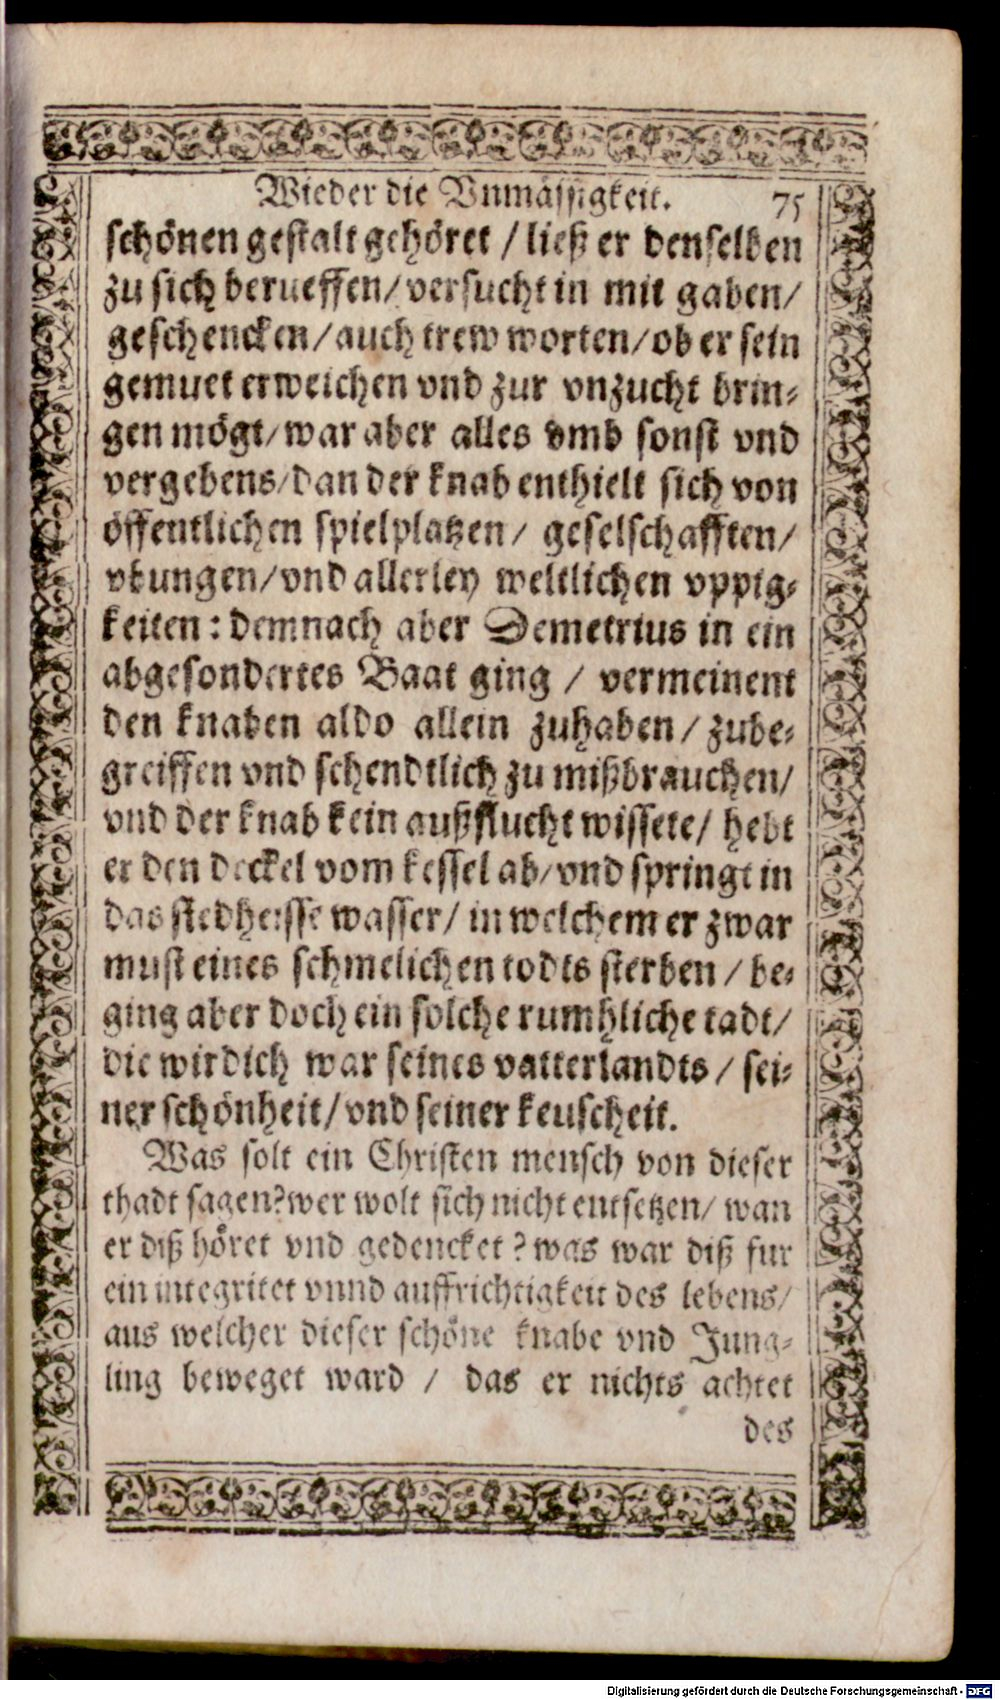 Wieder die Vnmässigkeit. 75
schönen gestalt gehöret / ließ er denselben
zu sich berueffen/ versucht in mit gaben/
geschencken/ auch trew worten/ ob er sein
gemuet erweichen vnd zur vnzucht brin-
gen mögt/ war aber alles vmb sonst vnd
vergebens/ dan der knab enthielt sich von
öffentlichen spielplatzen/ geselschafften/
vbungen/ vnd allerley weltlichen vppig-
keiten: demnach aber Demetrius in ein
abgesondertes Baat ging / vermeinent
den knaben aldo allein zuhaben/ zube-
greiffen vnd schendtlich zu mißbrauchen/
vnd der knab kein außflucht wissete/ hebt
er den deckel vom kessel ab/ vnd springt in
das siedheisse wasser/ in welchem er zwar
must eines schmelichen todts sterben / be-
ging aber doch ein solche rumhliche tadt/
die wirdich war seines vatterlandts / sei-
ner schönheit/ vnd seiner keuscheit.
Was solt ein Christen mensch von dieser
thadt sagen? wer wolt sich nicht entsetzen/ wan
er diß höret vnd gedencket? was war diß fur
ein integritet vnnd auffrichtigkeit des lebens/
aus welcher dieser schöne knabe vnd Jung-
ling beweget ward / das er nichts achtet
des
Digitalisierung gefördert durch die Deutsche Forschungsgemeinschaft - DFG